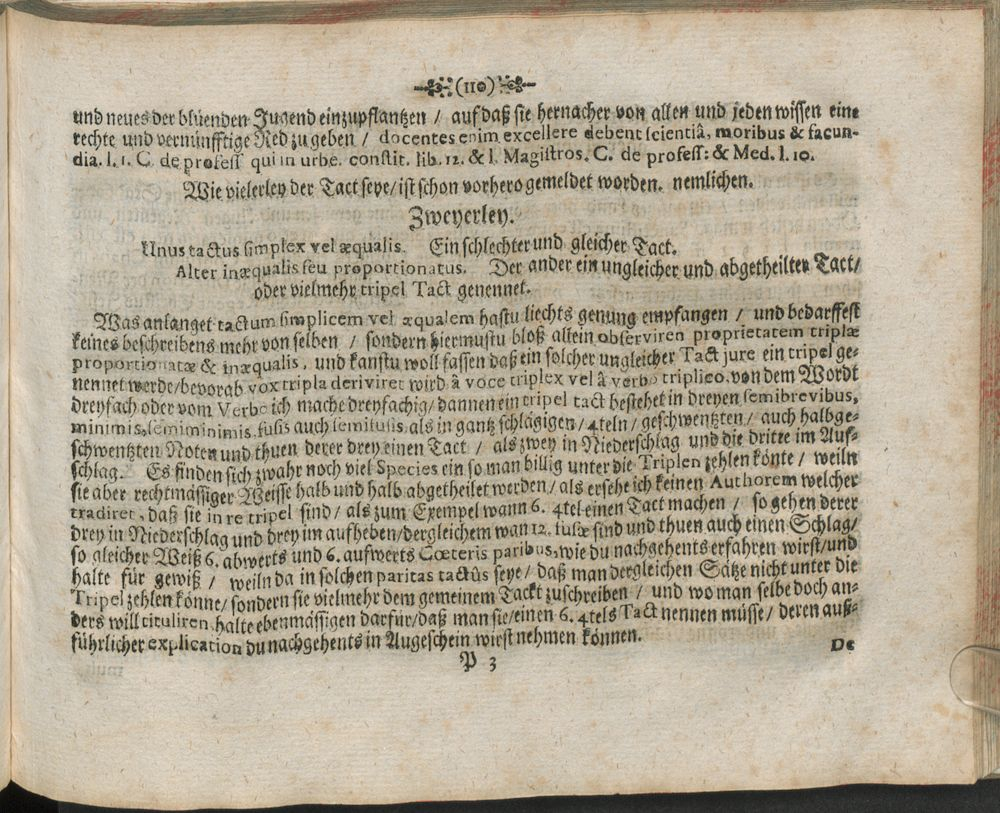 (110)
und neues der blüenden Jugend einzupflantzen / auf daß sie hernacher von allen und jeden wissen eine
rechte und vernünfftige Red zu geben / docentes enim excellere debent scientiâ, moribus & facun-
dia. l. 1. C. de profess qui in urbe. constit. lib. 12. & l. Magistros. C. de profess: & Med. l. 10.
Wie vielerley der Tact seye / ist schon vorhero gemeldet worden. nemlichen.
Zweyerley.
Unus tactus simplex vel æqualis. Ein schlechter und gleicher Tact.
Alter inæqualis seu proportionatus. Der ander ein ungleicher und abgetheilter Tact /
oder vielmehr tripel Tact genennet.
Was anlanget tactum simplicem vel æqualem hastu liechts genung empfangen / und bedarffest
keines beschreibens mehr von selben / sondern hier mustu bloß allein observiren proprietatem triplæ
proportionatæ & inæqualis, und kanstu woll fassen daß ein solcher ungleicher Tact jure ein tripel ge-
nennet werde / bevorab vox tripla deriviret wird â voce triplex vel â verbo triplico, von dem Wordt
dreyfach oder vom Verbo ich mache dreyfachig / dannen ein tripel tact bestehet in dreyen semibrevibus,
minimis, semiminimis, fusis auch semifusis, als in gantz schlägigen / 4teln / geschwentzten / auch halbge-
schwentzten Noten und thuen derer drey einen Tact / als zwey in Niederschlag und die dritte im Auf-
schlag. Es finden sich zwahr noch viel Species ein so man billig unter die Triplen zehlen könte / weiln
sie aber rechtmässiger Weisse halb und halb abgetheilet werden / als ersehe ich keinen Authorem welcher
tradiret, daß sie in re tripel sind / als zum Exempel wann 6. 4tel einen Tact machen / so gehen derer
drey in Niederschlag und drey im aufheben / dergleichem wan 12. fusæ sind und thuen auch einen Schlag /
so gleicher Weiß 6. abwerts und 6. aufwerts Cœteris paribus, wie du nachgehents erfahren wirst / und
halte für gewiß / weiln da in solchen paritas tactûs seye / daß man dergleichen Sätze nicht unter die
Tripel zehlen könne / sondern sie vielmehr dem gemeinem Tackt zuschreiben / und wo man selbe doch an-
ders will tituliren, halte ebenmässigen darfür / daß man sie / einen 6. 4tels Tact nennen müsse / deren auß-
führlicher explication du nachgehents in Augeschein wirst nehmen können.
P 3 De